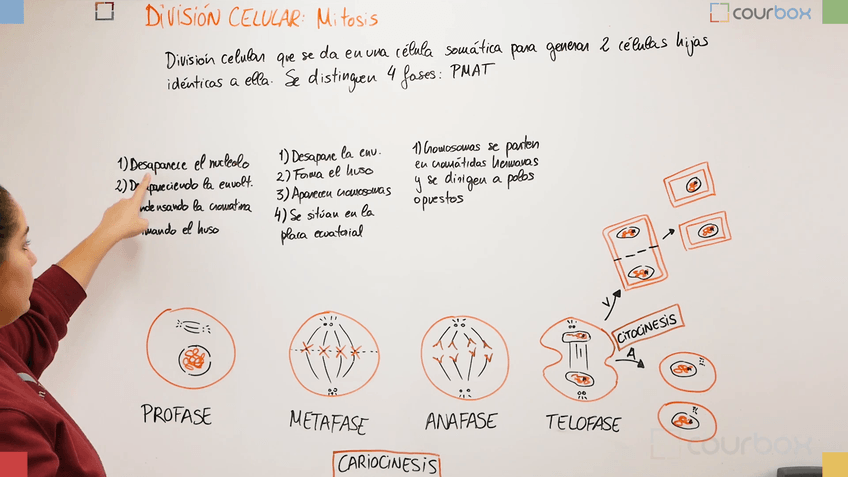 DIVISIÓN CELULAR: Mitosis
courbox
División celular que se da en una célula somática para generar 2 células hijas
idénticas a ella. Se distinguen 4 fases: PMAT
1) Desaparece el nucleolo
2) Desapareciendo la envolt.
ndensando la cromatina
mando el huso
1) Desapare la env.
2) Forma el huso
3) Aparecen cromosomas
4) Se sitúan en la
placa ecuatorial
1) Cromosomas se parten
en cromátidas hermanas
y se dirigen a polos
opuestos
V
CITOCINESIS
A
PROFASE
METAFASE
ANAFASE
TELOFASE
CARIOCINESIS
courbox